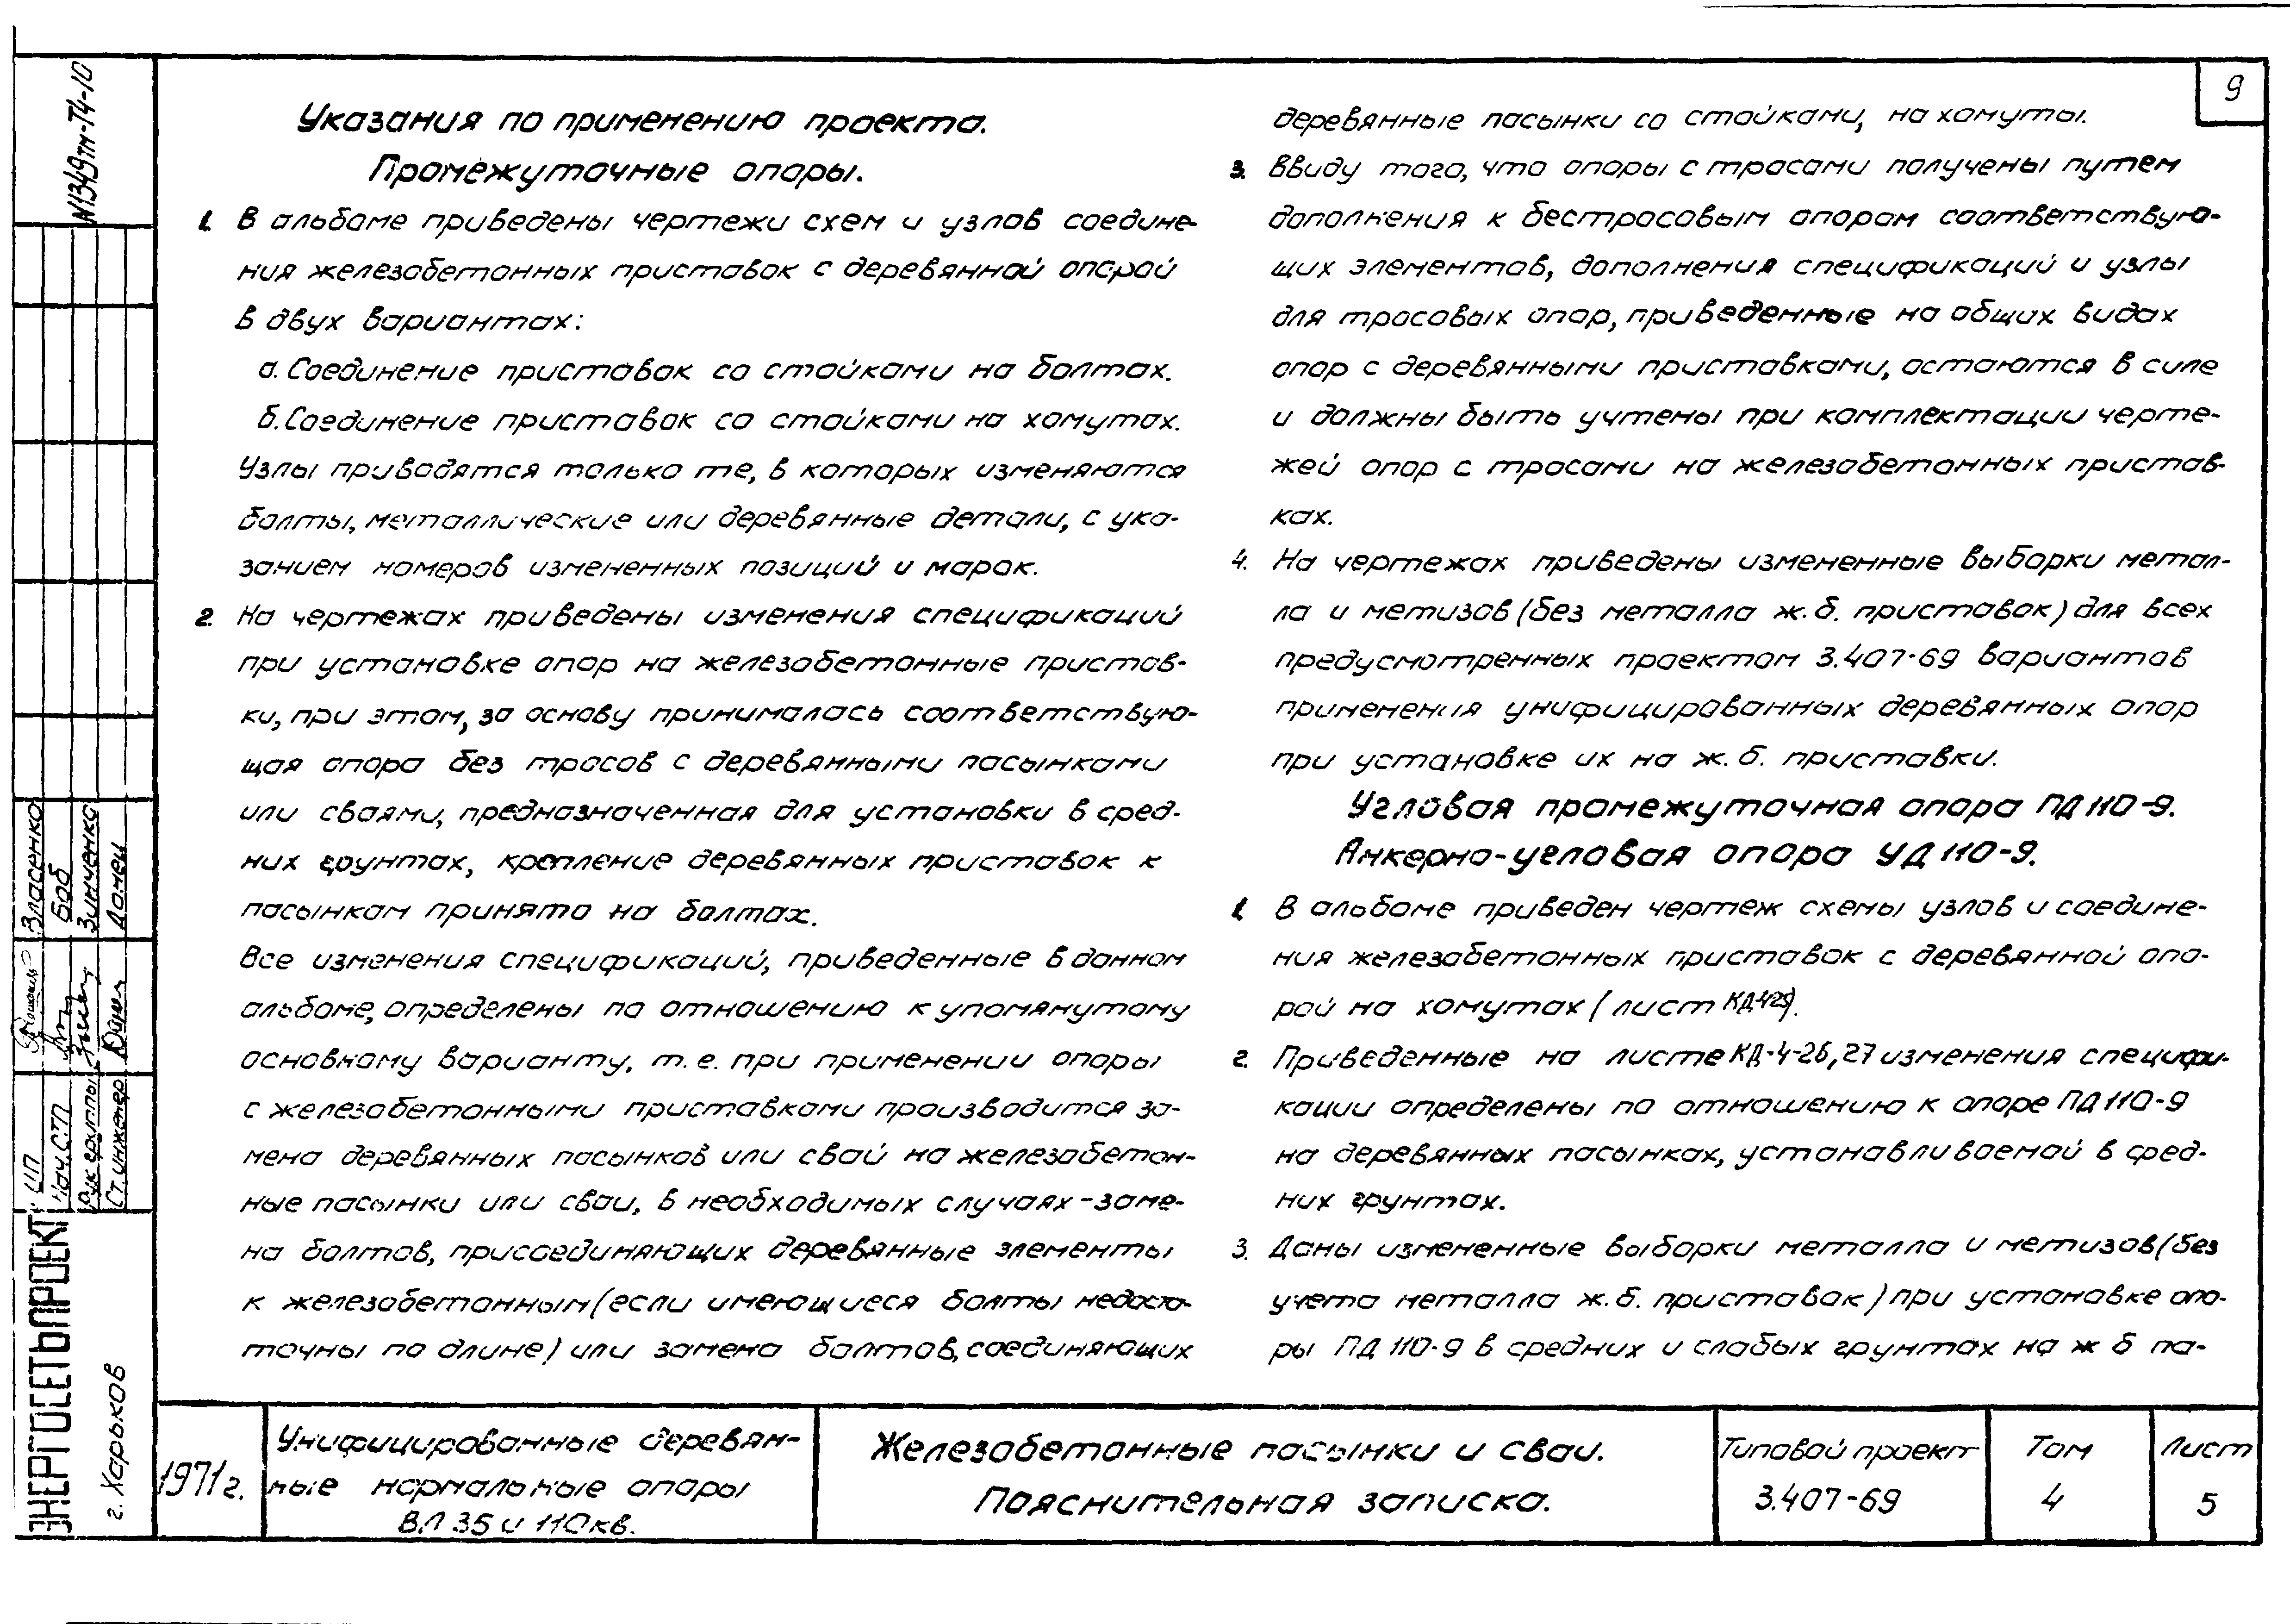 9
Указания по применению проекта.
Промежуточные опоры.
1. В альбоме приведены чертежи схем и узлов соедине-
ния железобетонных приставок с деревянной опорой
в двух вариантах:
а. Соединение приставок со стойками на болтах.
б. Соединение приставок со стойками на хомутах.
Узлы приводятся только те, в которых изменяются
болты, металлические или деревянные детали, с ука-
занием номеров измененных позиций и марок.
2. На чертежах приведены изменения спецификаций
при установке опор на железобетонные пристав-
ки, при этом, за основу принималась соответствую-
щая опора без тросов с деревянными пасынками
или сваями, предназначенная для установки в сред-
них грунтах, крепление деревянных приставок к
пасынкам принято на болтах.
Все изменения спецификаций, приведенные в данном
альбоме, определены по отношению к упомянутому
основному варианту, т.е. при применении опоры
с железобетонными приставками производится за-
мена деревянных пасынков или свай на железобетон-
ные пасынки или сваи, в необходимых случаях - заме-
на болтов, присоединяющих деревянные элементы
к железобетонным (если имеющиеся болты недоста-
точны по длине) или замена болтов, соединяющих
деревянные пасынки со стойками, на хомуты.
3. Ввиду того, что опоры с тросами получены путем
дополнения к бестросовым опорам соответствую-
щих элементов, дополнения спецификаций и узлы
для тросовых опор, приведенные на общих видах
опор с деревянными приставками, остаются в силе
и должны быть учтены при комплектации черте-
жей опор с тросами на железобетонных пристав-
ках.
4. На чертежах приведены измененные выборки метал-
ла и метизов (без металла ж.б. приставок) для всех
предусмотренных проектом 3.407-69 вариантов
применения унифицированных деревянных опор
при установке их на ж.б. приставки.
Угловая промежуточная опора ПД 110-9.
Анкерно-угловая опора УД 110-9.
1. В альбоме приведен чертеж схемы узлов и соедине-
ния железобетонных приставок с деревянной опо-
рой на хомутах (лист
2. Приведенные на листе КД-4-26, 27 изменения специфи-
кации определены по отношению к опоре ПД 110-9
на деревянных пасынках, устанавливаемой в сред-
них грунтах.
3. Даны измененные выборки металла и метизов (без
учета металла ж.б. приставок) при установке опо-
ры ПД 110-9 в средних и слабых грунтах на ж б па-
N1349тм-Т4-10
Власенко
Боб
Зинченко
Донец
Нач. СТП
Рук группы
Ст. инженер
ЭНЕРГОСЕТЬПРОЕКТ
г. Харьков
1971 г.
Унифицированные деревян-
ные нормальные опоры
ВЛ 35 и 110 кв.
Железобетонные пасынки и сваи.
Пояснительная записка.
Типовой проект
3.407-69
Том
4
Лист
5